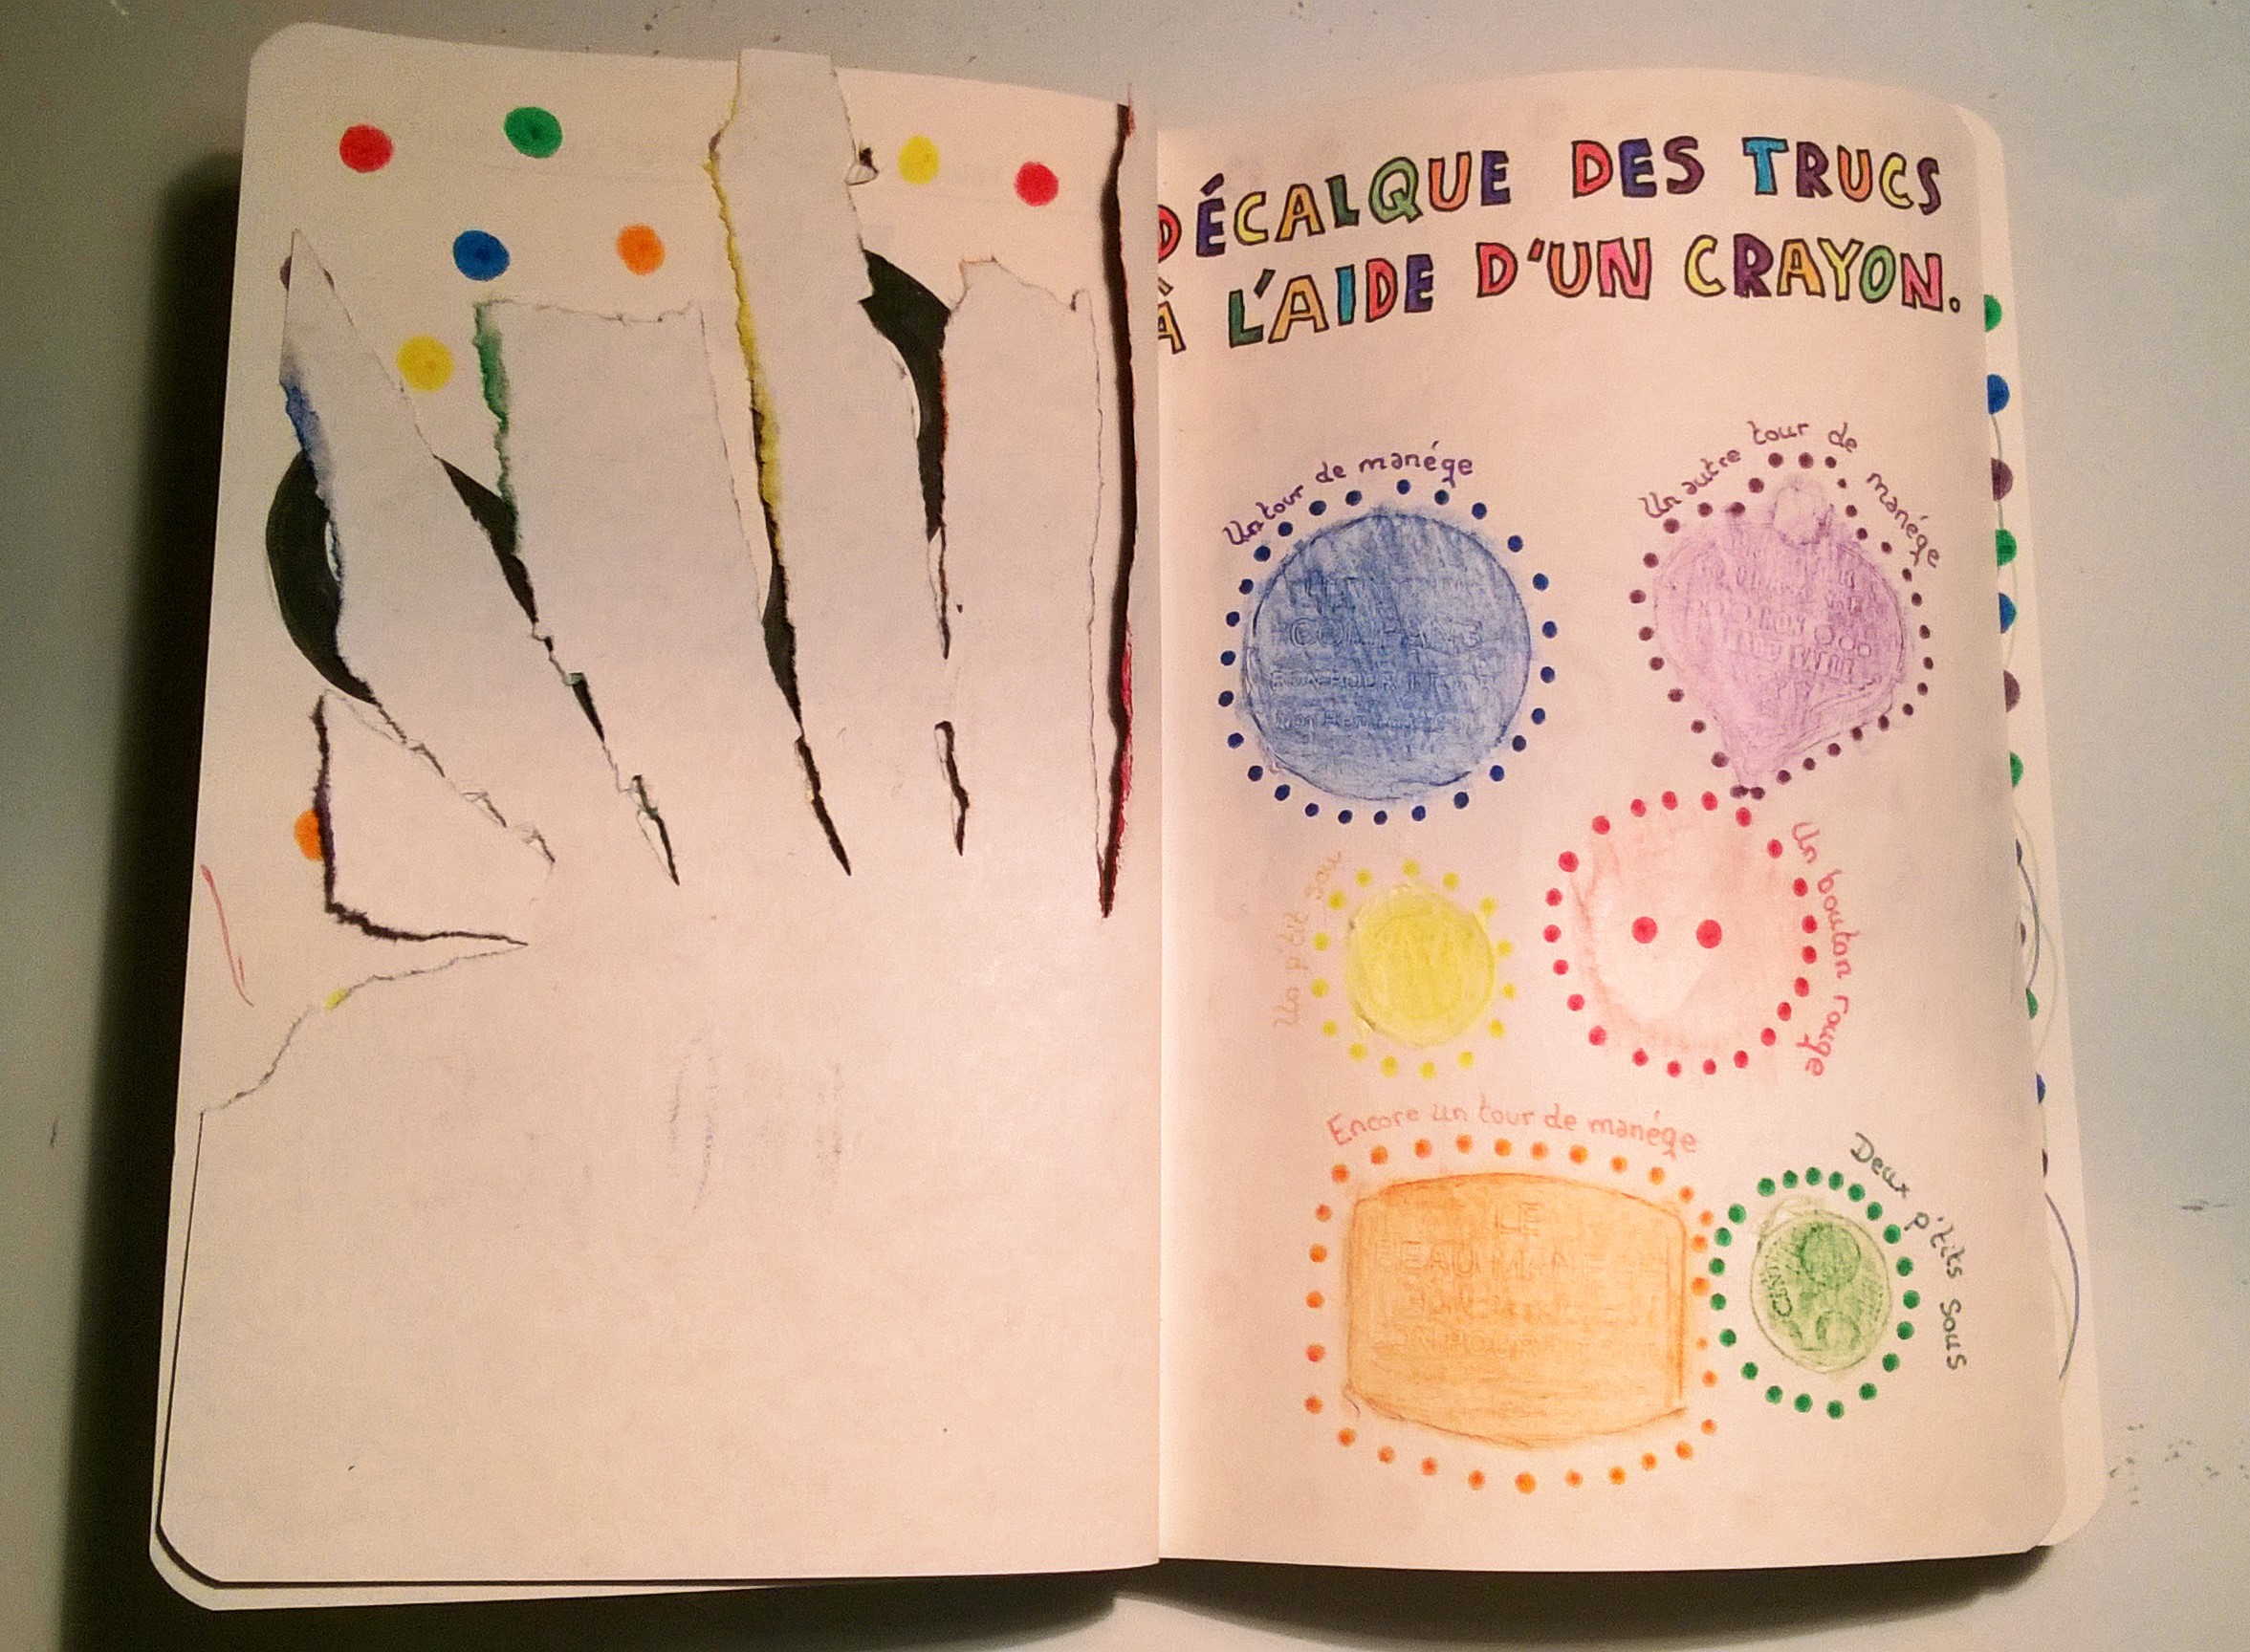 DÉCALQUE DES TRUCS
À L'AIDE D'UN CRAYON.
Un tour de manége
Un autre tour de manége
Un p'tit sou
Un bouton rouge
Encore un tour de manége
LE
BEAU MANE
BON POUR
Deux p'tits sous